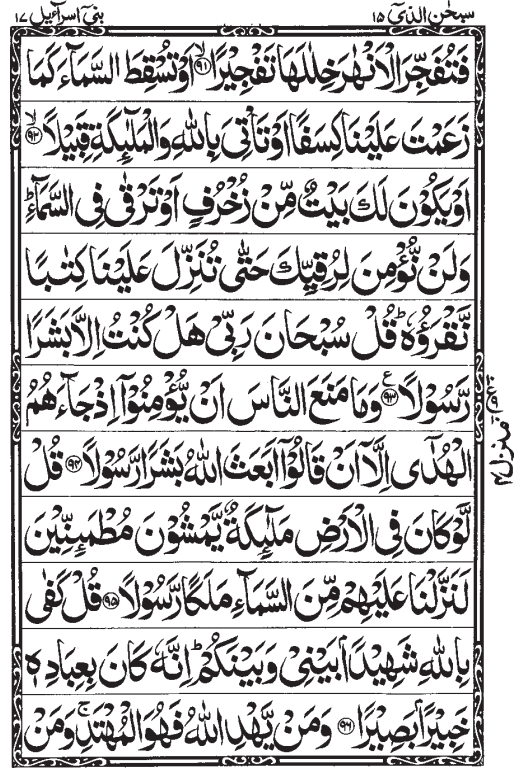 سبحٰن الذی ١٥
بنیٓ اسرآءیل ١٧
فَتُفَجِّرَ الْاَنْهٰرَ خِلٰلَهَا تَفْجِيْرًا ﴿٩١﴾ۙ اَوْ تُسْقِطَ السَّمَآءَ كَمَا
زَعَمْتَ عَلَيْنَا كِسَفًا اَوْ تَاْتِیَ بِاللّٰهِ وَالْمَلٰٓئِكَةِ قَبِيْلًا ﴿٩٢﴾ۙ
اَوْ يَكُوْنَ لَكَ بَيْتٌ مِّنْ زُخْرُفٍ اَوْ تَرْقٰى فِی السَّمَآءِؕ
وَلَنْ نُّؤْمِنَ لِرُقِيِّكَ حَتّٰى تُنَزِّلَ عَلَيْنَا كِتٰبًا
نَّقْرَؤُهٗؕ قُلْ سُبْحَانَ رَبِّیْ هَلْ كُنْتُ اِلَّا بَشَرًا
رَّسُوْلًا ﴿٩٣﴾ ع وَمَا مَنَعَ النَّاسَ اَنْ يُّؤْمِنُوْٓا اِذْ جَآءَهُمُ
الْهُدٰٓى اِلَّآ اَنْ قَالُوْٓا اَبَعَثَ اللّٰهُ بَشَرًا رَّسُوْلًا ﴿٩٤﴾ قُلْ
لَّوْ كَانَ فِی الْاَرْضِ مَلٰٓئِكَةٌ يَّمْشُوْنَ مُطْمَئِنِّيْنَ
لَنَزَّلْنَا عَلَيْهِمْ مِّنَ السَّمَآءِ مَلَكًا رَّسُوْلًا ﴿٩٥﴾ قُلْ كَفٰى
بِاللّٰهِ شَهِيْدًۢا بَيْنِیْ وَبَيْنَكُمْؕ اِنَّهٗ كَانَ بِعِبَادِهٖ
خَبِيْرًۢا بَصِيْرًا ﴿٩٦﴾ وَمَنْ يَّهْدِ اللّٰهُ فَهُوَ الْمُهْتَدِۚ وَمَنْ
منزل ٤